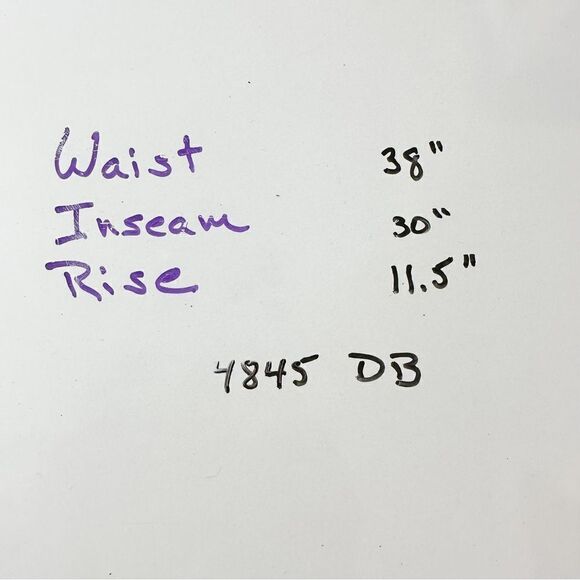 Waist 38"
Inseam 30"
Rise 11.5"
4845 DB